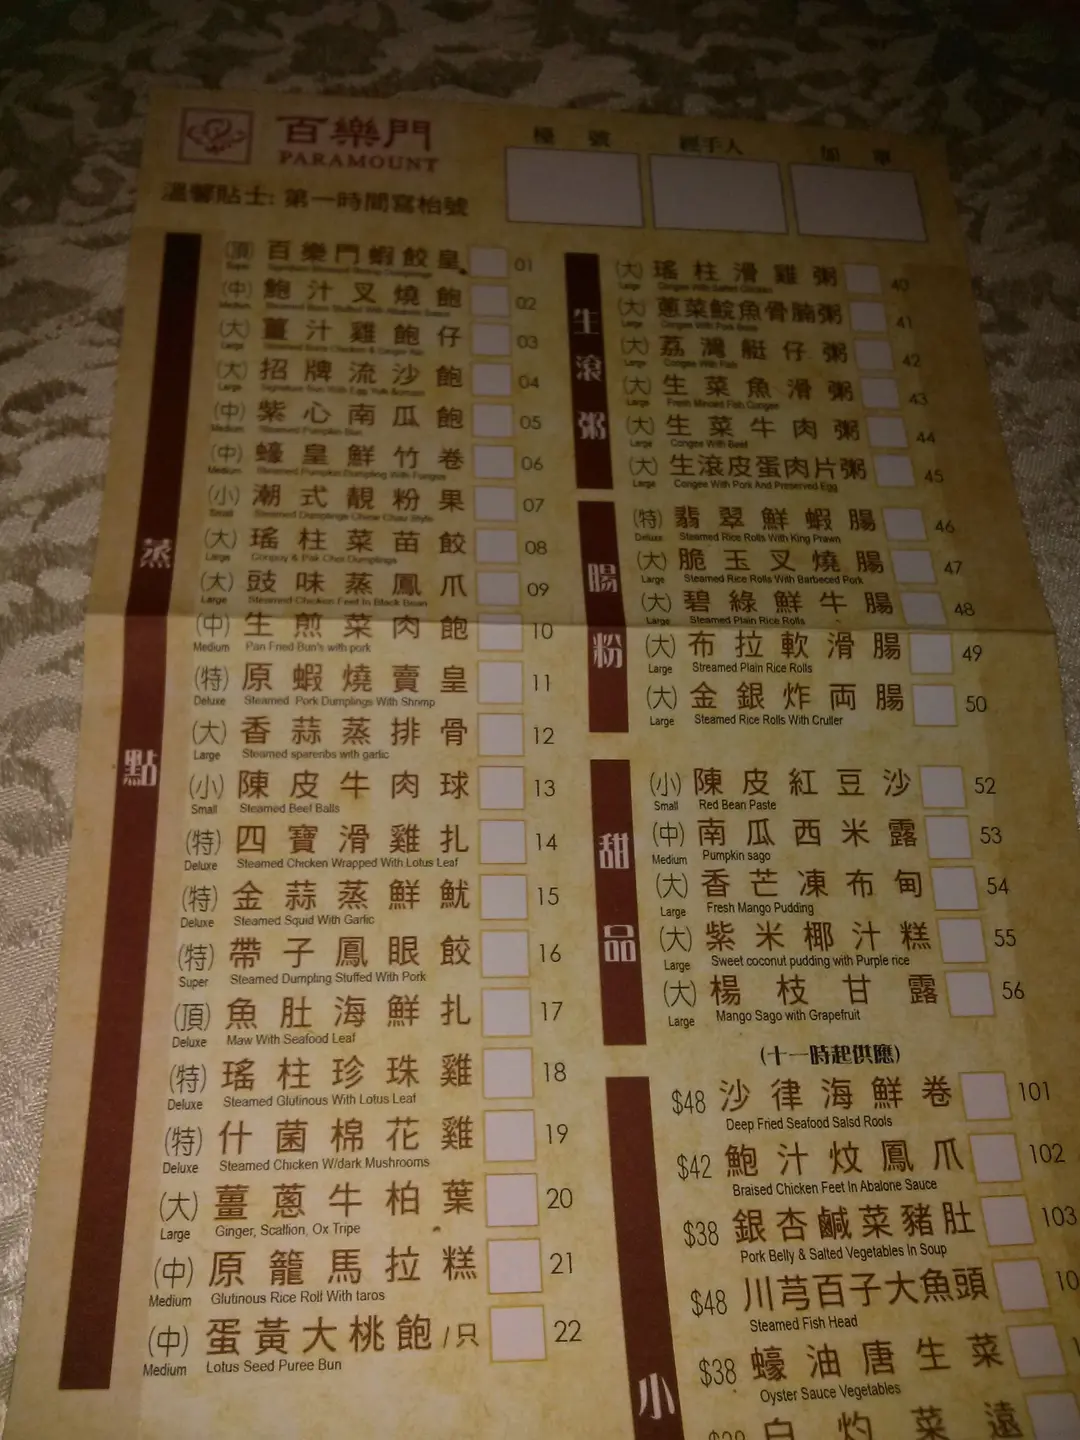 百樂門
PARAMOUNT
檯 號
經手人
加 單
溫馨貼士: 第一時間寫枱號
蒸 點
(頂) 百樂門蝦餃皇 01
Super
(中) 鮑汁叉燒飽 02
Medium Steamed Buns Stuffed With Abalone Sauce
(大) 薑汁雞飽仔 03
Large
(大) 招牌流沙飽 04
Large
(中) 紫心南瓜飽 05
Medium Steamed Pumpkin Bun
(中) 蠔皇鮮竹卷 06
Medium
(小) 潮式靚粉果 07
Small Steamed Dumplings Chew Chau Style
(大) 瑤柱菜苗餃 08
Large Conpoy & Pak Choi Dumplings
(大) 豉味蒸鳳爪 09
Large Steamed Chicken Feet In Black Bean
(中) 生煎菜肉飽 10
Medium Pan Fried Bun's with pork
(特) 原蝦燒賣皇 11
Deluxe Steamed Pork Dumplings With Shrimp
(大) 香蒜蒸排骨 12
Large Steamed spareribs with garlic
(小) 陳皮牛肉球 13
Small Steamed Beef Balls
(特) 四寶滑雞扎 14
Deluxe Steamed Chicken Wrapped With Lotus Leaf
(特) 金蒜蒸鮮魷 15
Deluxe Steamed Squid With Garlic
(特) 帶子鳳眼餃 16
Super Steamed Dumpling Stuffed With Pork
(頂) 魚肚海鮮扎 17
Deluxe Maw With Seafood Leaf
(特) 瑤柱珍珠雞 18
Deluxe Steamed Glutinous With Lotus Leaf
(特) 什菌棉花雞 19
Deluxe Steamed Chicken W/dark Mushrooms
(大) 薑蔥牛柏葉 20
Large Ginger, Scallion, Ox Tripe
(中) 原籠馬拉糕 21
Medium Glutinous Rice Roll With taros
(中) 蛋黃大桃飽/只 22
Medium Lotus Seed Puree Bun
生滾粥
(大) 瑤柱滑雞粥 40
Large
(大) 蔥菜鯇魚骨腩粥 41
Large Congee With Pork Bone
(大) 荔灣艇仔粥 42
Large Congee With Fish
(大) 生菜魚滑粥 43
Large Fresh Minced Fish Congee
(大) 生菜牛肉粥 44
Large Congee With Beef
(大) 生滾皮蛋肉片粥 45
Large Congee With Pork And Preserved Egg
腸粉
(特) 翡翠鮮蝦腸 46
Deluxe Steamed Rice Rolls With King Prawn
(大) 脆玉叉燒腸 47
Large Steamed Rice Rolls With Barbeced Pork
(大) 碧綠鮮牛腸 48
Large Steamed Plain Rice Rolls
(大) 布拉軟滑腸 49
Large Streamed Plain Rice Rolls
(大) 金銀炸両腸 50
Large Steamed Rice Rolls With Cruller
甜品
(小) 陳皮紅豆沙 52
Small Red Bean Paste
(中) 南瓜西米露 53
Medium Pumpkin sago
(大) 香芒凍布甸 54
Large Fresh Mango Pudding
(大) 紫米椰汁糕 55
Large Sweet coconut pudding with Purple rice
(大) 楊枝甘露 56
Large Mango Sago with Grapefruit
(十一時起供應)
小
$48 沙律海鮮卷 101
Deep Fried Seafood Salsd Rools
$42 鮑汁炆鳳爪 102
Braised Chicken Feet In Abalone Sauce
$38 銀杏鹹菜豬肚 103
Pork Belly & Salted Vegetables In Soup
$48 川芎百子大魚頭 10
Steamed Fish Head
$38 蠔油唐生菜
Oyster Sauce Vegetables
白灼菜遠